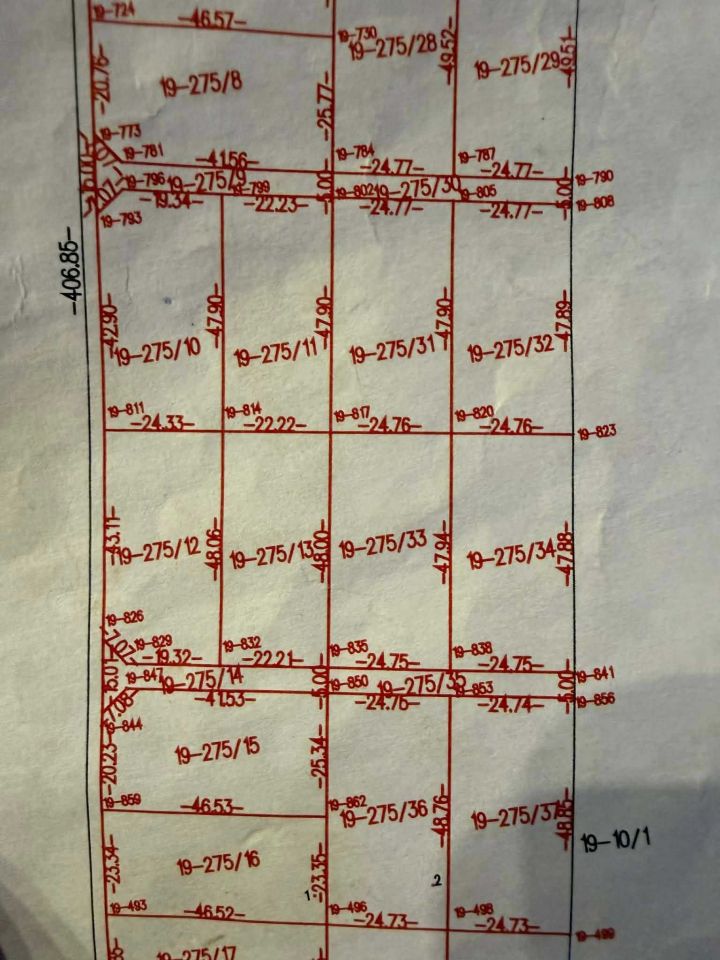 19-724
-46.57-
19-730
19-275/28
-49.52-
19-275/29
-49.51-
-20.76-
19-275/8
-25.77-
19-773
19-781
-41.56-
19-784
-24.77-
19-787
-24.77-
19-790
19-796
19-275/9
19-799
-5.00-
19-802
19-275/30
19-805
-5.00-
19-808
-19.34-
-22.23-
-24.77-
-24.77-
19-793
-406.85-
-42.90-
-47.90-
-47.90-
-47.90-
-47.89-
19-275/10
19-275/11
19-275/31
19-275/32
19-811
19-814
19-817
19-820
-24.33-
-22.22-
-24.76-
-24.76-
19-823
-43.11-
-48.06-
-48.00-
-47.94-
-47.88-
19-275/12
19-275/13
19-275/33
19-275/34
19-826
19-829
19-832
19-835
19-838
-19.32-
-22.21-
-24.75-
-24.75-
19-841
19-847
19-275/14
-5.00-
19-850
19-275/35
19-853
-5.00-
19-856
-41.53-
-24.76-
-24.74-
19-844
-20.23-
19-275/15
-25.34-
19-859
-46.53-
19-862
19-275/36
-48.76-
19-275/37
-48.85-
19-10/1
-23.34-
19-275/16
-23.35-
1
2
19-493
-46.52-
19-496
-24.73-
19-498
-24.73-
19-499
19-275/17